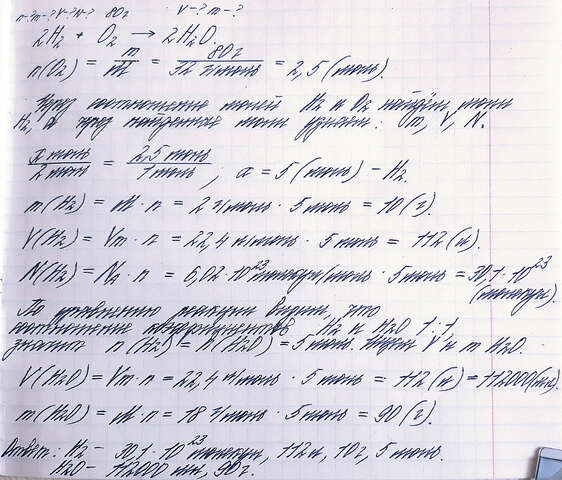 n-? m-? V-? N-? 80г V-? m-?
2H₂ + O₂ → 2H₂O.
n(O₂) = m/M = 80г/32 г/моль = 2,5 (моль).
Через соотношение молей H₂ и O₂ найдём моли
H₂, а через найденные моли узнаем: m, V, N.
x моль/2 моль = 2,5 моль/1 моль ; x = 5 (моль) - H₂
m(H₂) = M · n = 2 г/моль · 5 моль = 10 (г).
V(H₂) = Vm · n = 22,4 л/моль · 5 моль = 112 (л).
N(H₂) = Nₐ · n = 6,02 · 10²³ молекул/моль · 5 моль = 30,1 · 10²³
(молекул).
По уравнению реакции видим, что
соотношение коэффициентов H₂ и H₂O 1:1,
значит n(H₂) = n(H₂O) = 5 моль. Ищем V и m H₂O.
V(H₂O) = Vm · n = 22,4 л/моль · 5 моль = 112 (л) = 112000 (мл).
m(H₂O) = M · n = 18 г/моль · 5 моль = 90 (г).
Ответ: H₂ - 30,1 · 10²³ молекул, 112л, 10г, 5 моль.
H₂O - 112000 мл, 90г.